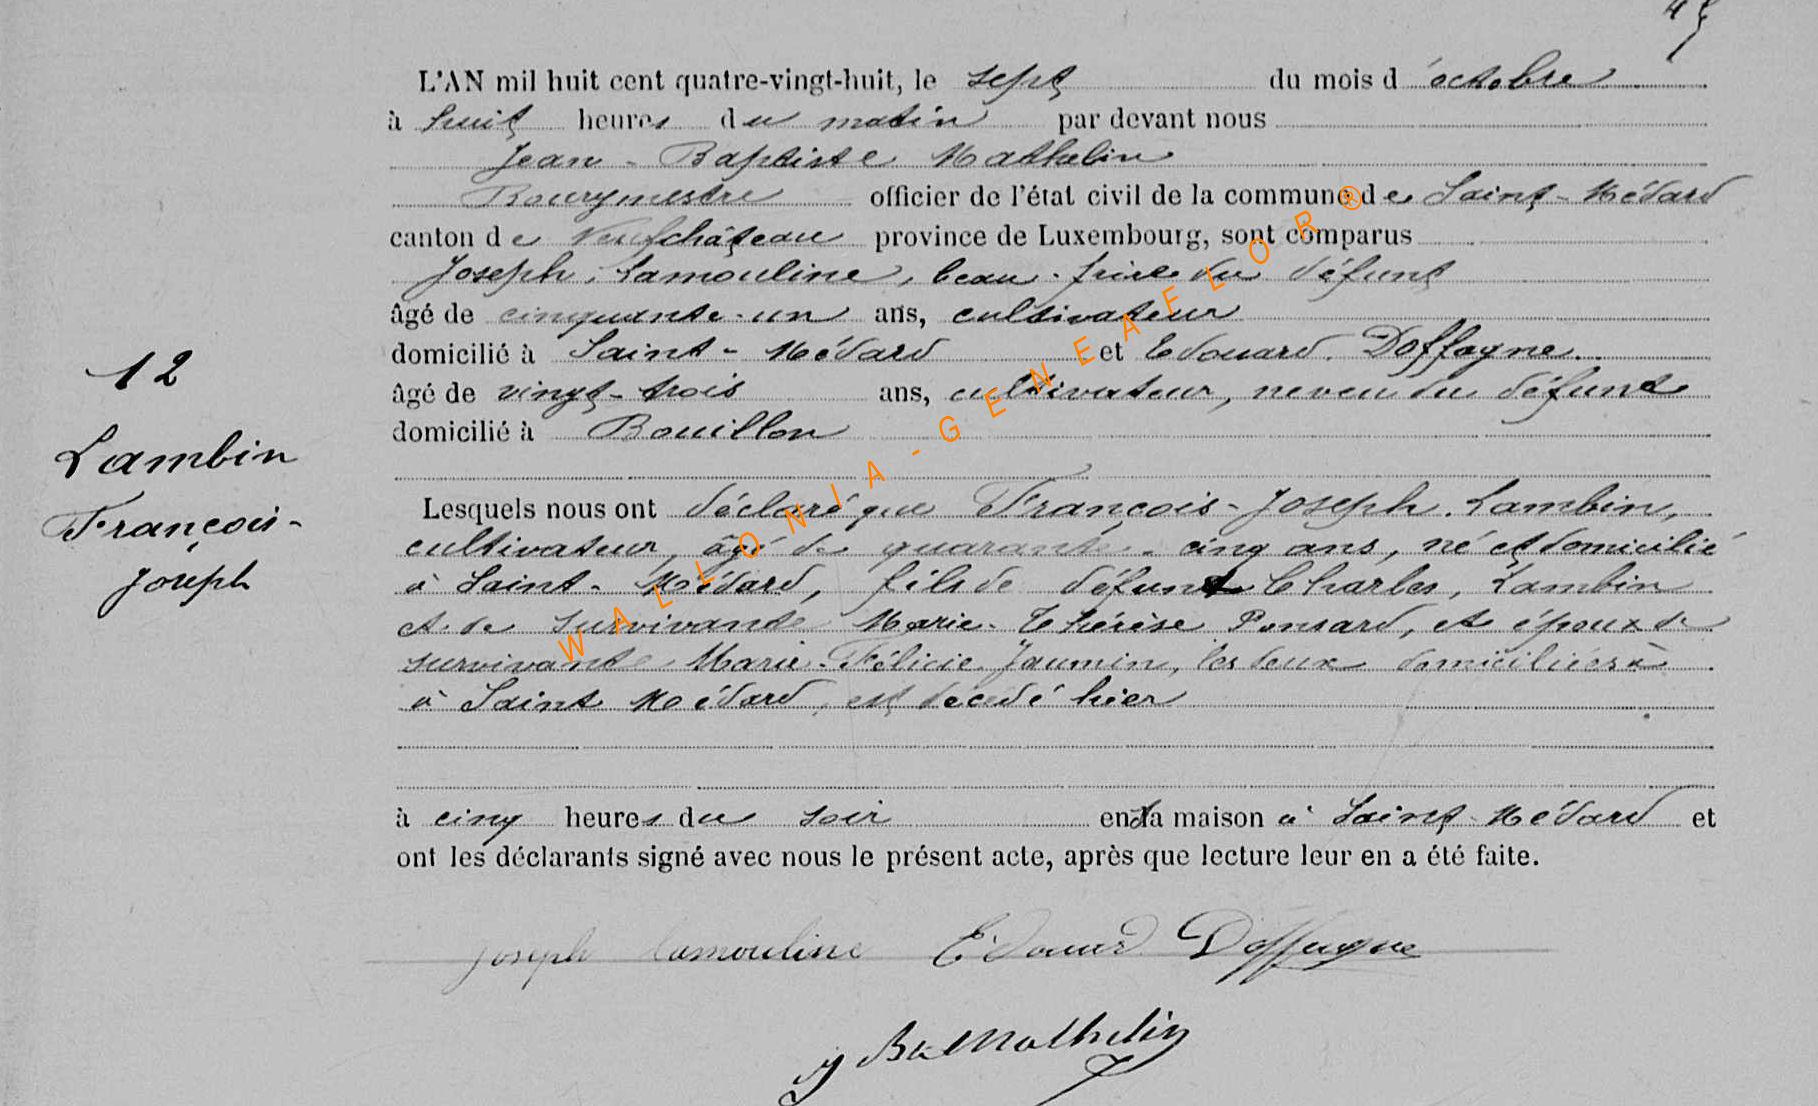 45
L'AN mil huit cent quatre-vingt-huit, le sept du mois d'octobre
à huit heures du matin par devant nous
Jean-Baptiste Mathelin
Bourgmestre officier de l'état civil de la commune de Saint-Médard
canton de Neufchâteau province de Luxembourg, sont comparus
Joseph, Lamouline, beau-frère du défunt
âgé de cinquante-un ans, cultivateur
domicilié à Saint-Médard et Edouard Doffagne
âgé de vingt-trois ans, cultivateur, neveu du défunt
domicilié à Bouillon
Lesquels nous ont déclaré que François-Joseph Lambin,
cultivateur, âgé de quarante-cinq ans, né et domicilié
à Saint-Médard, fils de défunt Charles, Lambin
et de survivante Marie-Thérèse Ponsard, et époux de
survivante Marie-Félicie Jaumin, les deux domiciliées à
à Saint Médard, est décedé hier
à cinq heures du soir en sa maison à Saint-Médard et
ont les déclarants signé avec nous le présent acte, après que lecture leur en a été faite.
12
Lambin
François-
Joseph
Joseph Lamouline Edouard Doffagne
J Bte Mathelin
WALLONIA-GENEAFLOR®